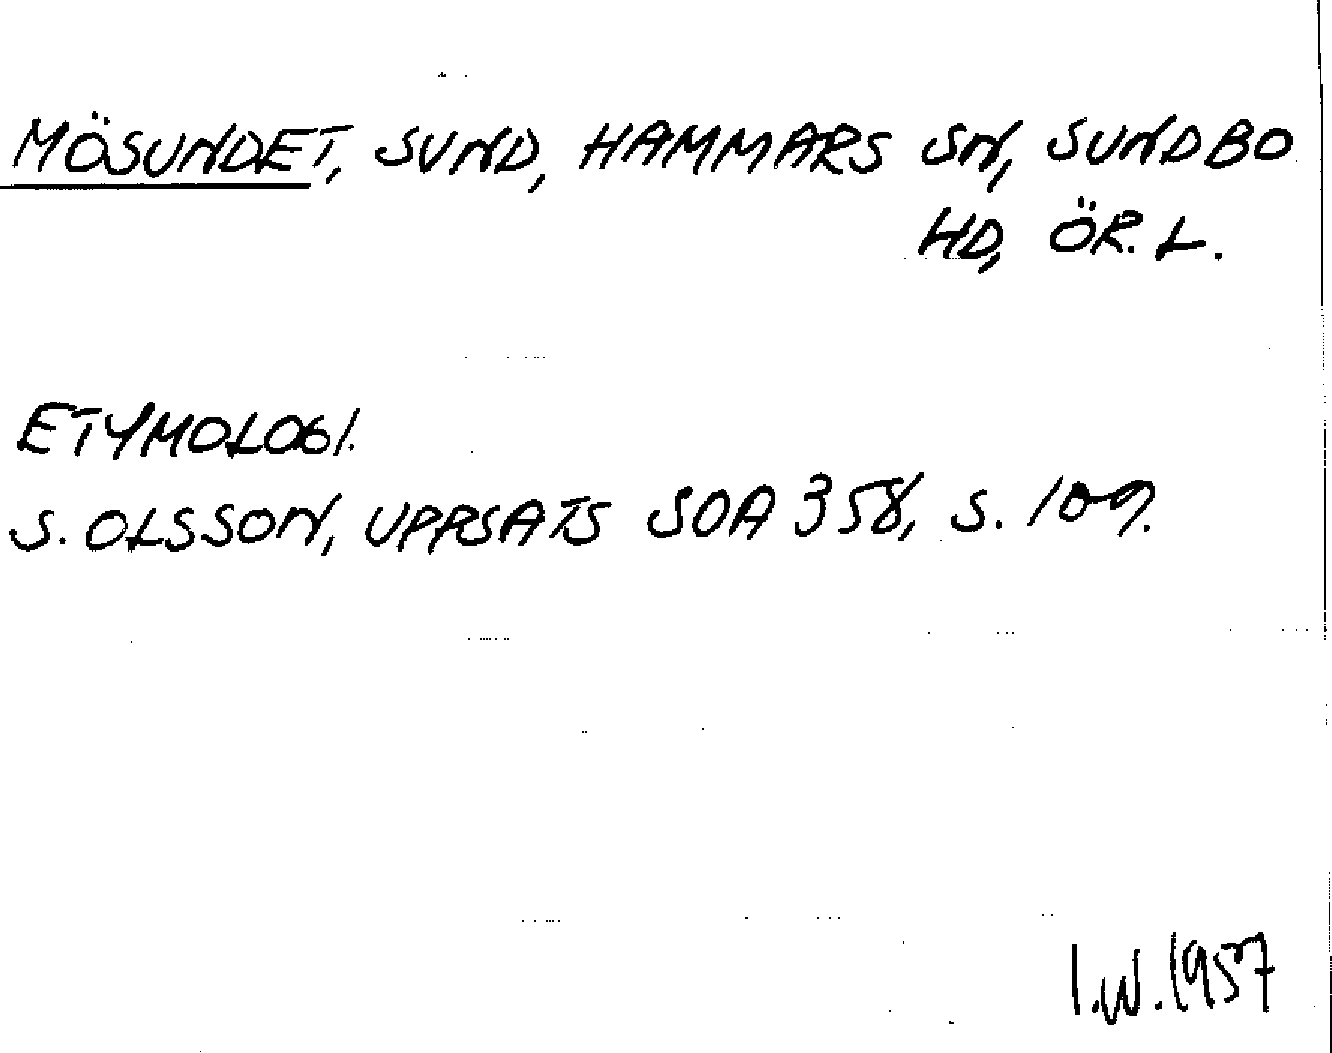 MÖSUNDET, SUND, HAMMARS SN, SUNDBO
HD, ÖR. L.
ETYMOLOGI.
S. OLSSON, UPPSATS SOA 358, S. 109.
I.W. 1957